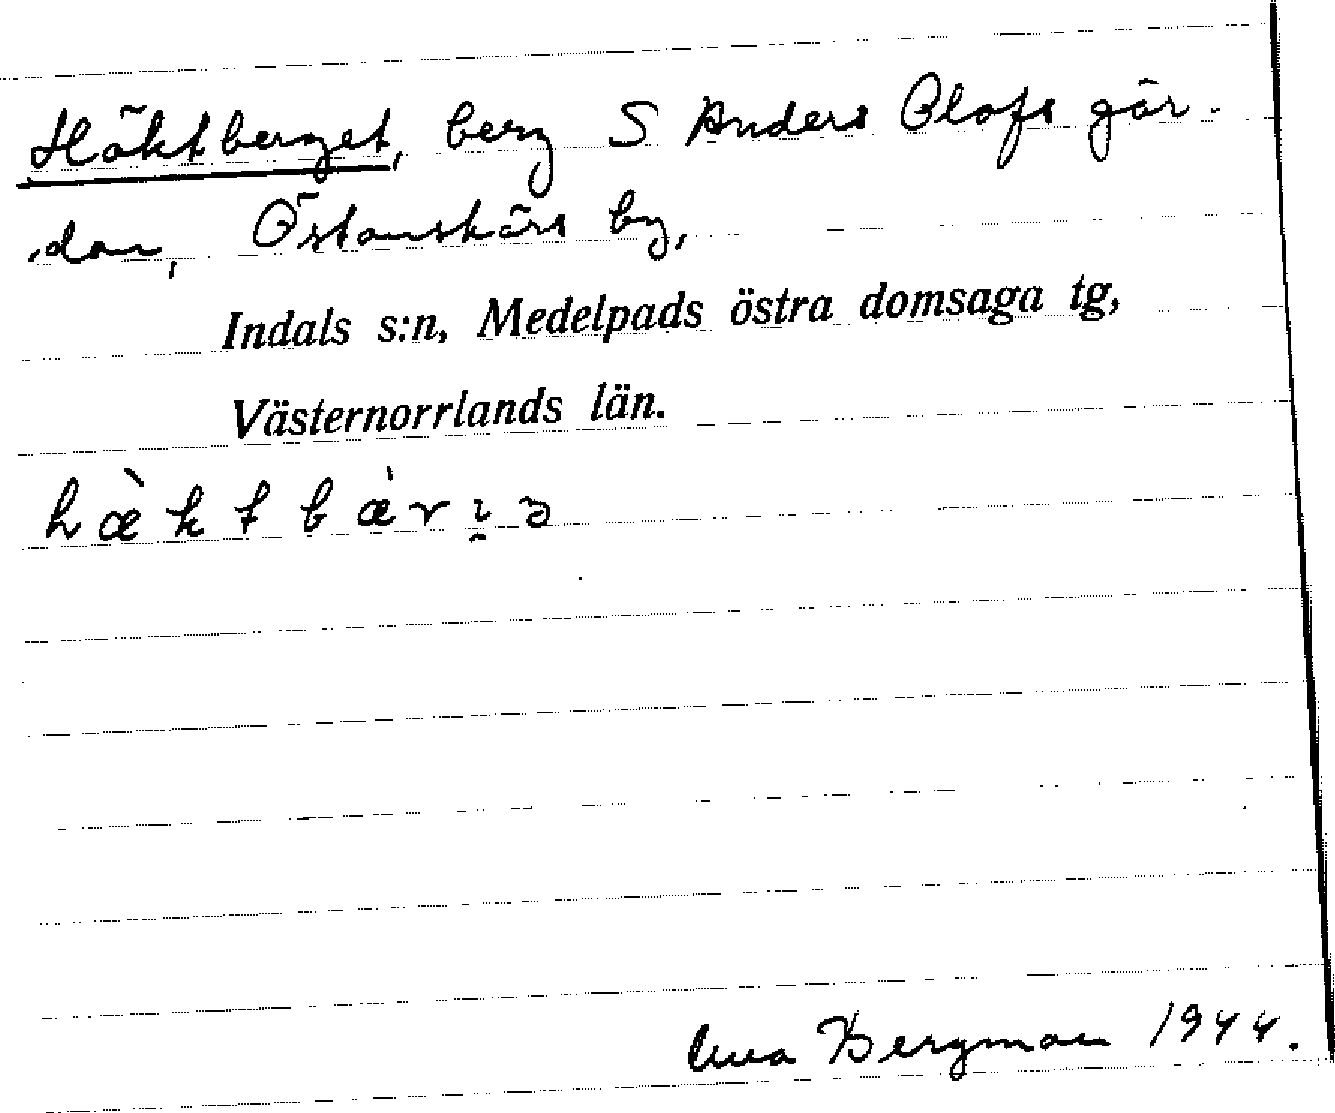 Häktberget, berg S Anders Olofs går-
dan, Östanskärs by,
Indals s:n, Medelpads östra domsaga tg,
Västernorrlands län.
hæ̀ktbæ̀rı̯ə
Bergman 1944.